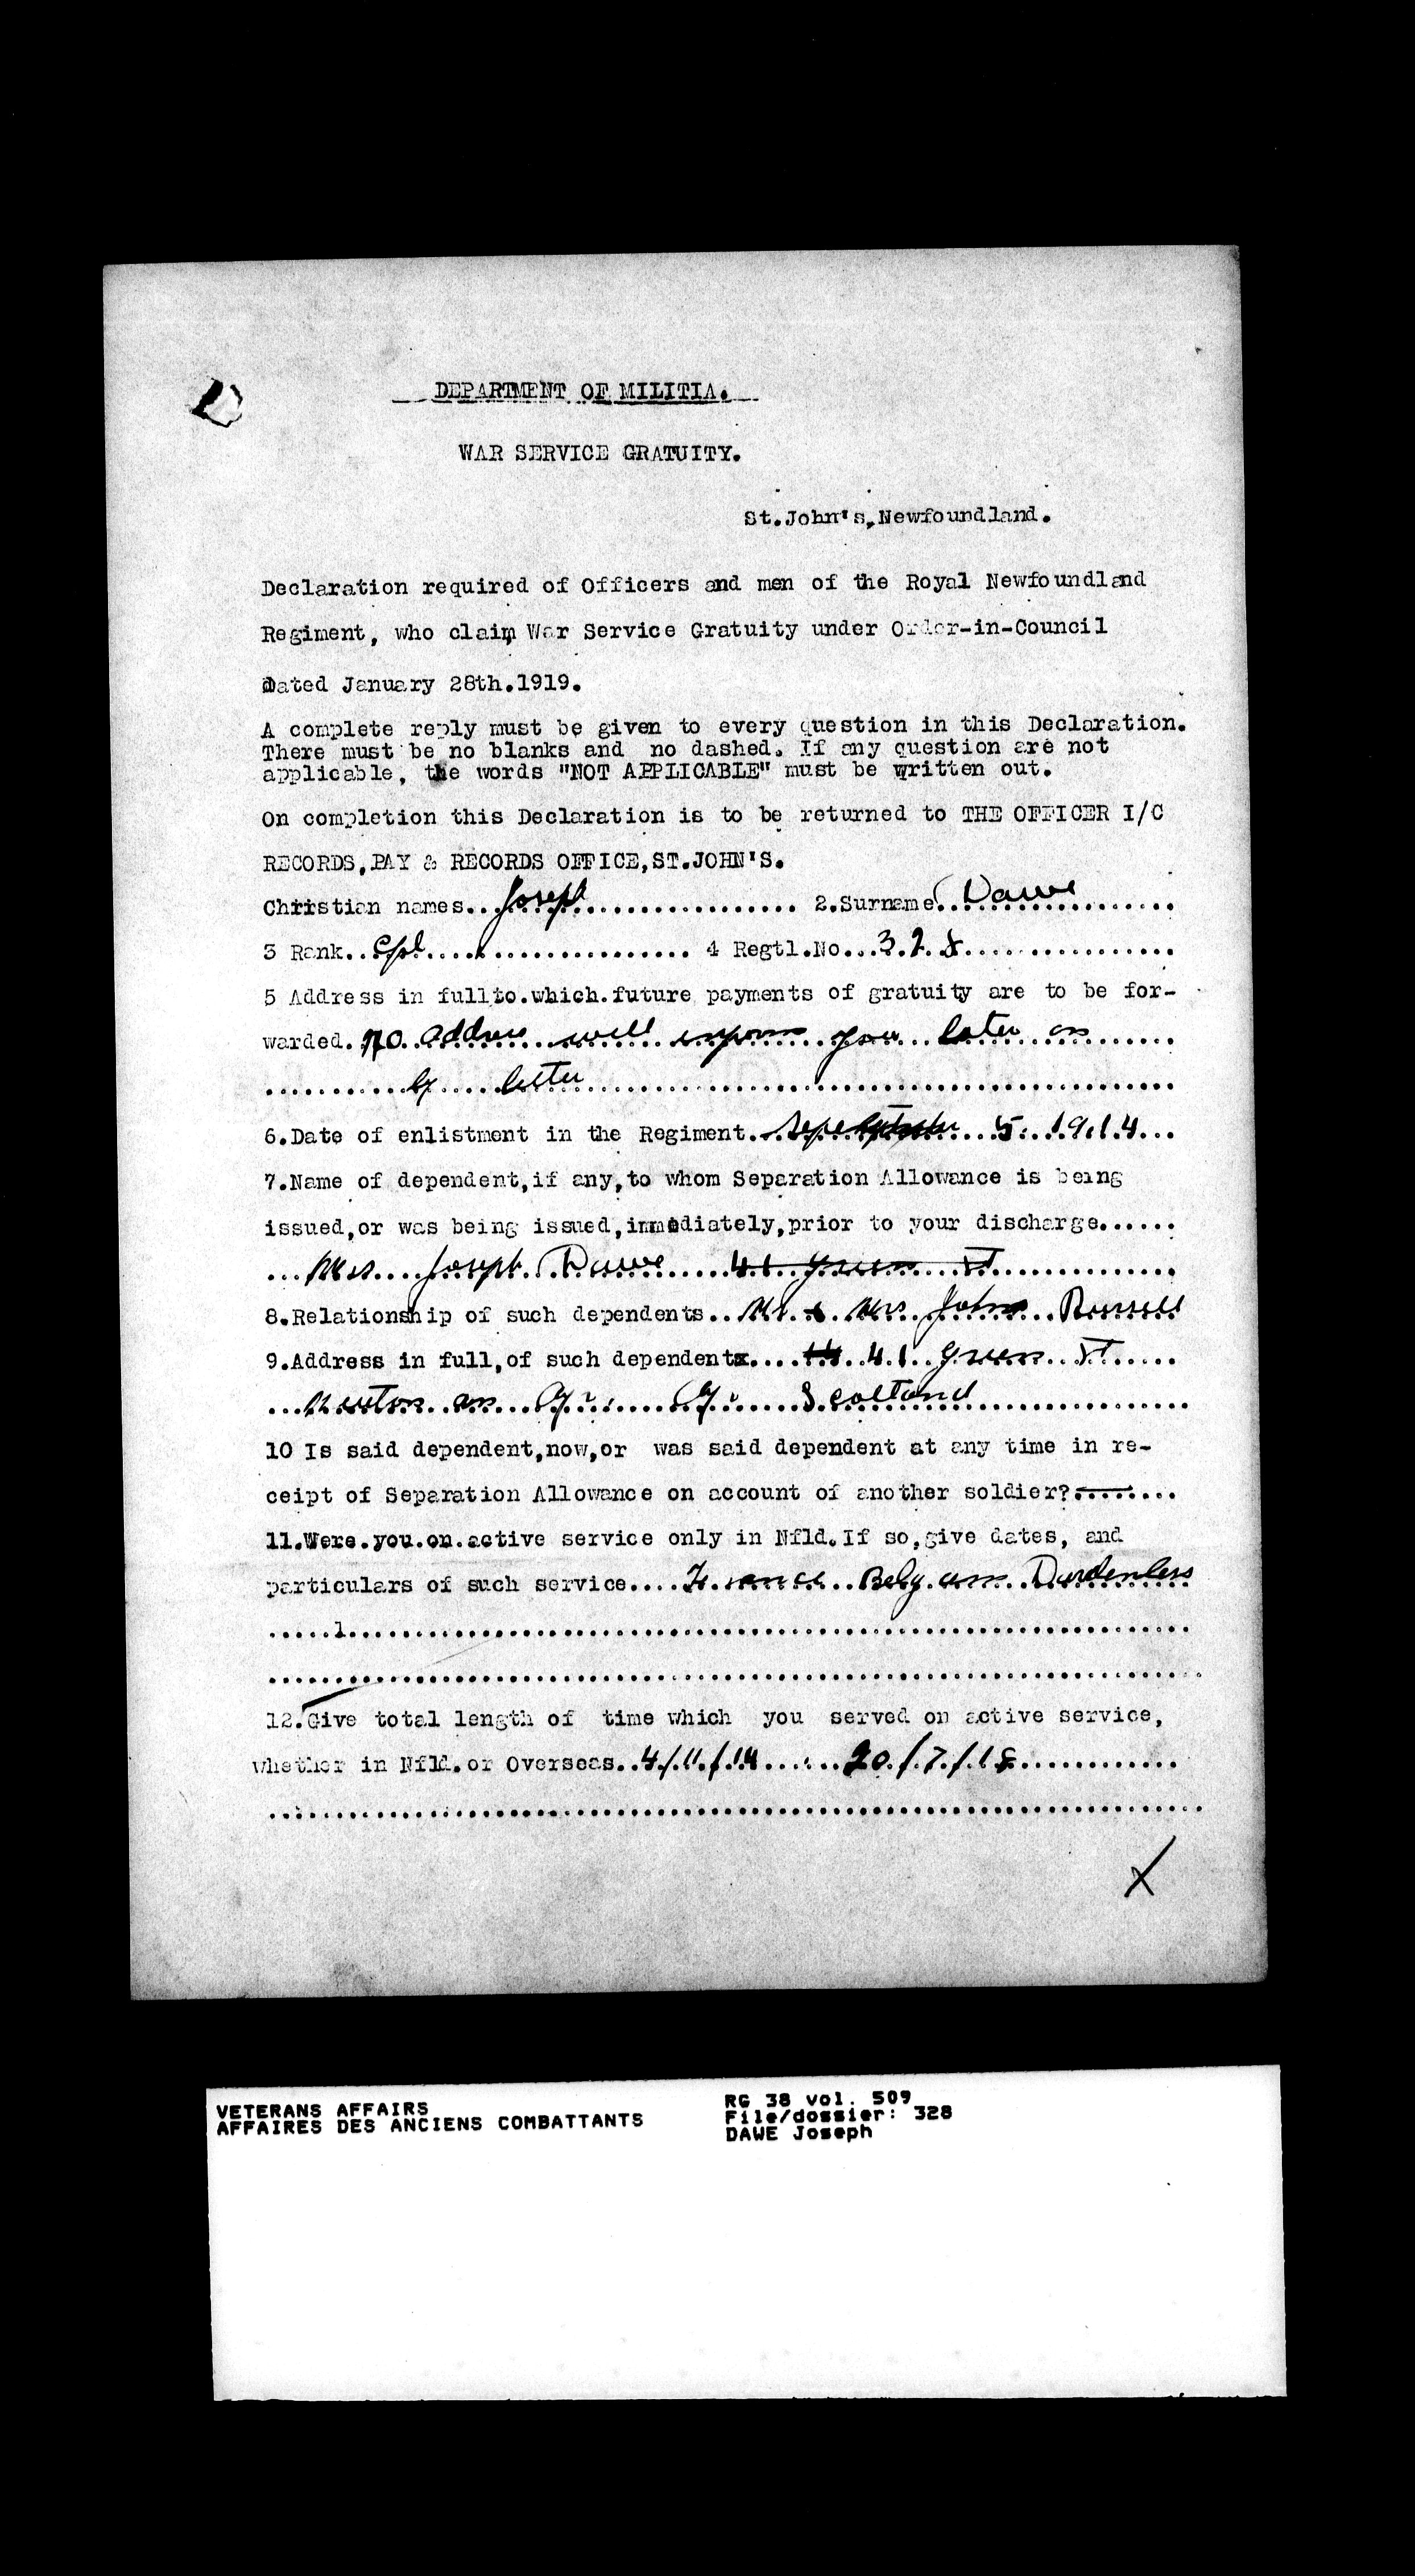 DEPARTMENT OF MILITIA.
WAR SERVICE GRATUITY.
St.John's,Newfoundland.
Declaration required of Officers and men of the Royal Newfoundland
Regiment, who claim War Service Gratuity under Order-in-Council
Dated January 28th.1919.
A complete reply must be given to every question in this Declaration.
There must be no blanks and no dashed. If any question are not
applicable, the words "NOT APPLICABLE" must be written out.
On completion this Declaration is to be returned to THE OFFICER I/C
RECORDS,PAY & RECORDS OFFICE,ST.JOHN'S.
Christian names...Joseph.................... 2.Surname...Dawe...........
3 Rank..Cpl...................... 4 Regtl.No...328................
5 Address in full to.which.future payments of gratuity are to be for-
warded. no address will inform you later on
by letter
6.Date of enlistment in the Regiment. 5. 1914...
7.Name of dependent,if any,to whom Separation Allowance is being
issued,or was being issued,immediately,prior to your discharge......
...Mrs....Joseph Dawe.....41 green St...............
8.Relationship of such dependents..Mr. & Mrs John Russell
9.Address in full,of such dependents....41 green St......
...Newton on Ayr. Ayr Scotland
10 Is said dependent,now,or was said dependent at any time in re-
ceipt of Separation Allowance on account of another soldier?........
11.Were.you.on.active service only in Nfld.If so,give dates, and
particulars of such service....France..Belgum Dardenless
.....1...............
12.Give total length of time which you served on active service,
whether in Nfld.or Overseas..4/11/14.......20/7/18............
X
VETERANS AFFAIRS
AFFAIRES DES ANCIENS COMBATTANTS
RG 38 vol. 509
File/dossier: 328
DAWE Joseph